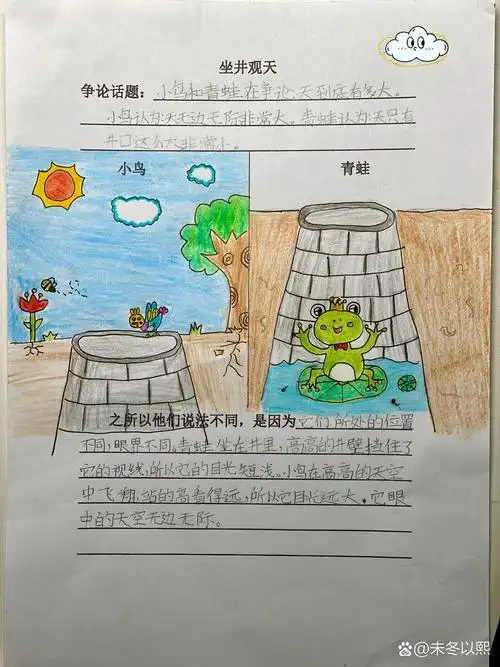 坐井观天
争论话题：小鸟和青蛙在争论:天到底有多大。
小鸟认为:天无边无际非常大。青蛙认为:天只有
井口这么大非常小。
小鸟
青蛙
之所以他们说法不同，是因为它们所处的位置
不同,眼界不同。青蛙坐在井里,高高的井壁挡住了
它的视线,所以它的目光短浅。小鸟在高高的天空
中飞翔,站的高看得远,所以它目光远大。它眼
中的天空无边无际。
@未冬以熙